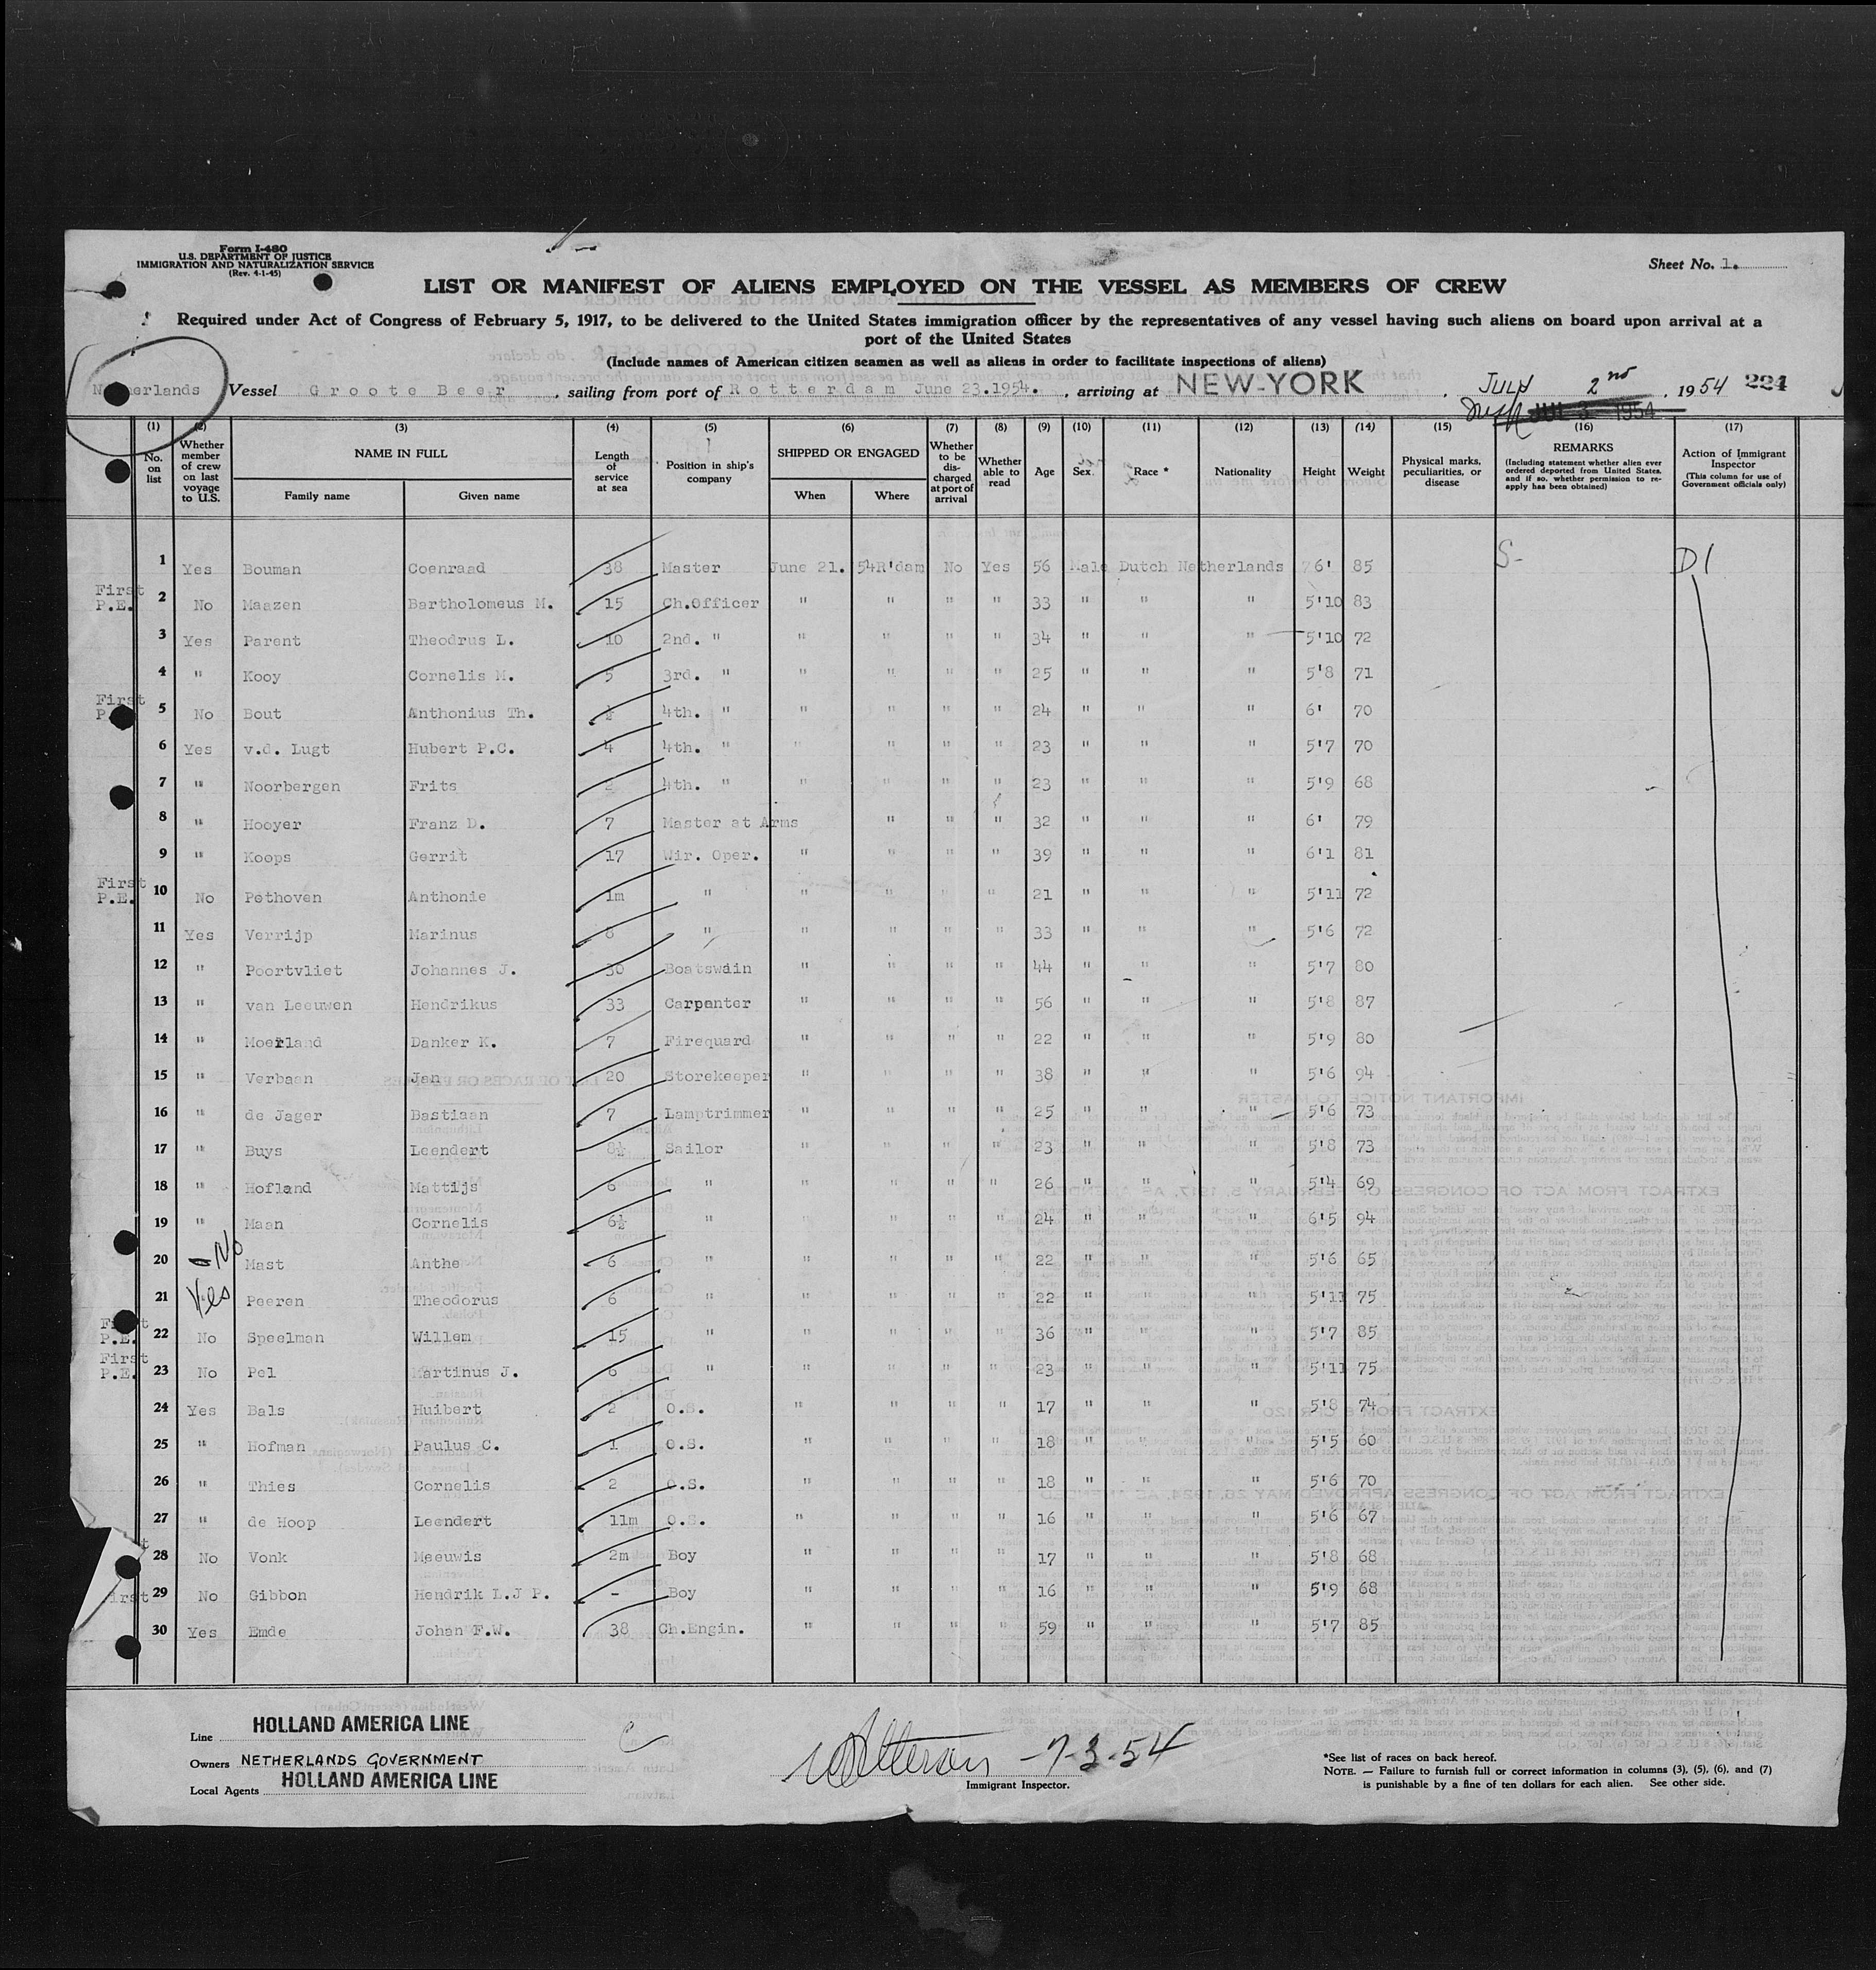 Form I-480
U.S. DEPARTMENT OF JUSTICE
IMMIGRATION AND NATURALIZATION SERVICE
(Rev. 4-1-45)
Sheet No. 1.
LIST OR MANIFEST OF ALIENS EMPLOYED ON THE VESSEL AS MEMBERS OF CREW
Required under Act of Congress of February 5, 1917, to be delivered to the United States immigration officer by the representatives of any vessel having such aliens on board upon arrival at a
port of the United States
(Include names of American citizen seamen as well as aliens in order to facilitate inspections of aliens)
Netherlands Vessel Groote Beer, sailing from port of Rotterdam June 23.1954., arriving at NEW-YORK, JULY 2nd, 1954 224
JUL 3 1954
(1) (2) (3) (4) (5) (6) (7) (8) (9) (10) (11) (12) (13) (14) (15) (16) (17)
No. on list
Whether member of crew on last voyage to U.S.
NAME IN FULL
Family name Given name
Length of service at sea
Position in ship's company
SHIPPED OR ENGAGED
When Where
Whether to be discharged at port of arrival
Whether able to read
Age Sex Race * Nationality Height Weight
Physical marks, peculiarities, or disease
REMARKS
(Including statement whether alien ever ordered deported from United States, and if so, whether permission to re-apply has been obtained)
Action of Immigrant Inspector
(This column for use of Government officials only)
1 Yes Bouman Coenraad 38 Master June 21. 54 R'dam No Yes 56 Male Dutch Netherlands 6' 85 S- D1
First P.E. 2 No Maazen Bartholomeus M. 15 Ch.Officer " " " " 33 " " " 5'10 83
3 Yes Parent Theodrus L. 10 2nd. " " " " " 34 " " " 5'10 72
4 " Kooy Cornelis M. 5 3rd. " " " " " 25 " " " 5'8 71
First P. 5 No Bout Anthonius Th. ½ 4th. " " " " " 24 " " " 6' 70
6 Yes v.d. Lugt Hubert P.C. 4 4th. " " " " " 23 " " " 5'7 70
7 " Noorbergen Frits 2 4th. " " " " " 23 " " " 5'9 68
8 " Hooyer Franz D. 7 Master at Arms " " " 32 " " " 6' 79
9 " Koops Gerrit 17 Wir. Oper. " " " " 39 " " " 6'1 81
First P.E. 10 No Pethoven Anthonie 1m " " " " " 21 " " " 5'11 72
11 Yes Verrijp Marinus 8 " " " " " 33 " " " 5'6 72
12 " Poortvliet Johannes J. 30 Boatswain " " " " 44 " " " 5'7 80
13 " van Leeuwen Hendrikus 33 Carpenter " " " " 56 " " " 5'8 87
14 " Moerland Danker K. 7 Firequard " " " " 22 " " " 5'9 80
15 " Verbaan Jan 20 Storekeeper " " " " 38 " " " 5'6 94
16 " de Jager Bastiaan 7 Lamptrimmer " " " " 25 " " " 5'6 73
17 " Buys Leendert 8½ Sailor " " " " 23 " " " 5'8 73
18 " Hofland Mattijs 6 " " " " " 26 " " " 5'4 69
19 " Maan Cornelis 6½ " " " " " 24 " " " 6'5 94
20 No Mast Anthe 6 " " " " " 22 " " " 5'6 65
21 Yes Peeren Theodorus 6 " " " " " 22 " " " 5'11 75
First P.E. 22 No Speelman Willem 15 " " " " " 36 " " " 5'7 85
First P.E. 23 No Pel Martinus J. 6 " " " " " 23 " " " 5'11 75
24 Yes Bals Huibert 2 O.S. " " " " 17 " " " 5'8 74
25 " Hofman Paulus C. 1 O.S. " " " " 18 " " " 5'5 60
26 " Thies Cornelis 2 O.S. " " " " 18 " " " 5'6 70
27 " de Hoop Leendert 11m O.S. " " " " 16 " " " 5'6 67
28 No Vonk Meeuwis 2m Boy " " " " 17 " " " 5'8 68
29 No Gibbon Hendrik L.J P. - Boy " " " " 16 " " " 5'9 68
30 Yes Emde Johan F.W. 38 Ch.Engin. " " " " 59 " " " 5'7 85
Line HOLLAND AMERICA LINE
Owners NETHERLANDS GOVERNMENT
Local Agents HOLLAND AMERICA LINE
-7-3-54
Immigrant Inspector.
*See list of races on back hereof.
NOTE. — Failure to furnish full or correct information in columns (3), (5), (6), and (7)
is punishable by a fine of ten dollars for each alien. See other side.